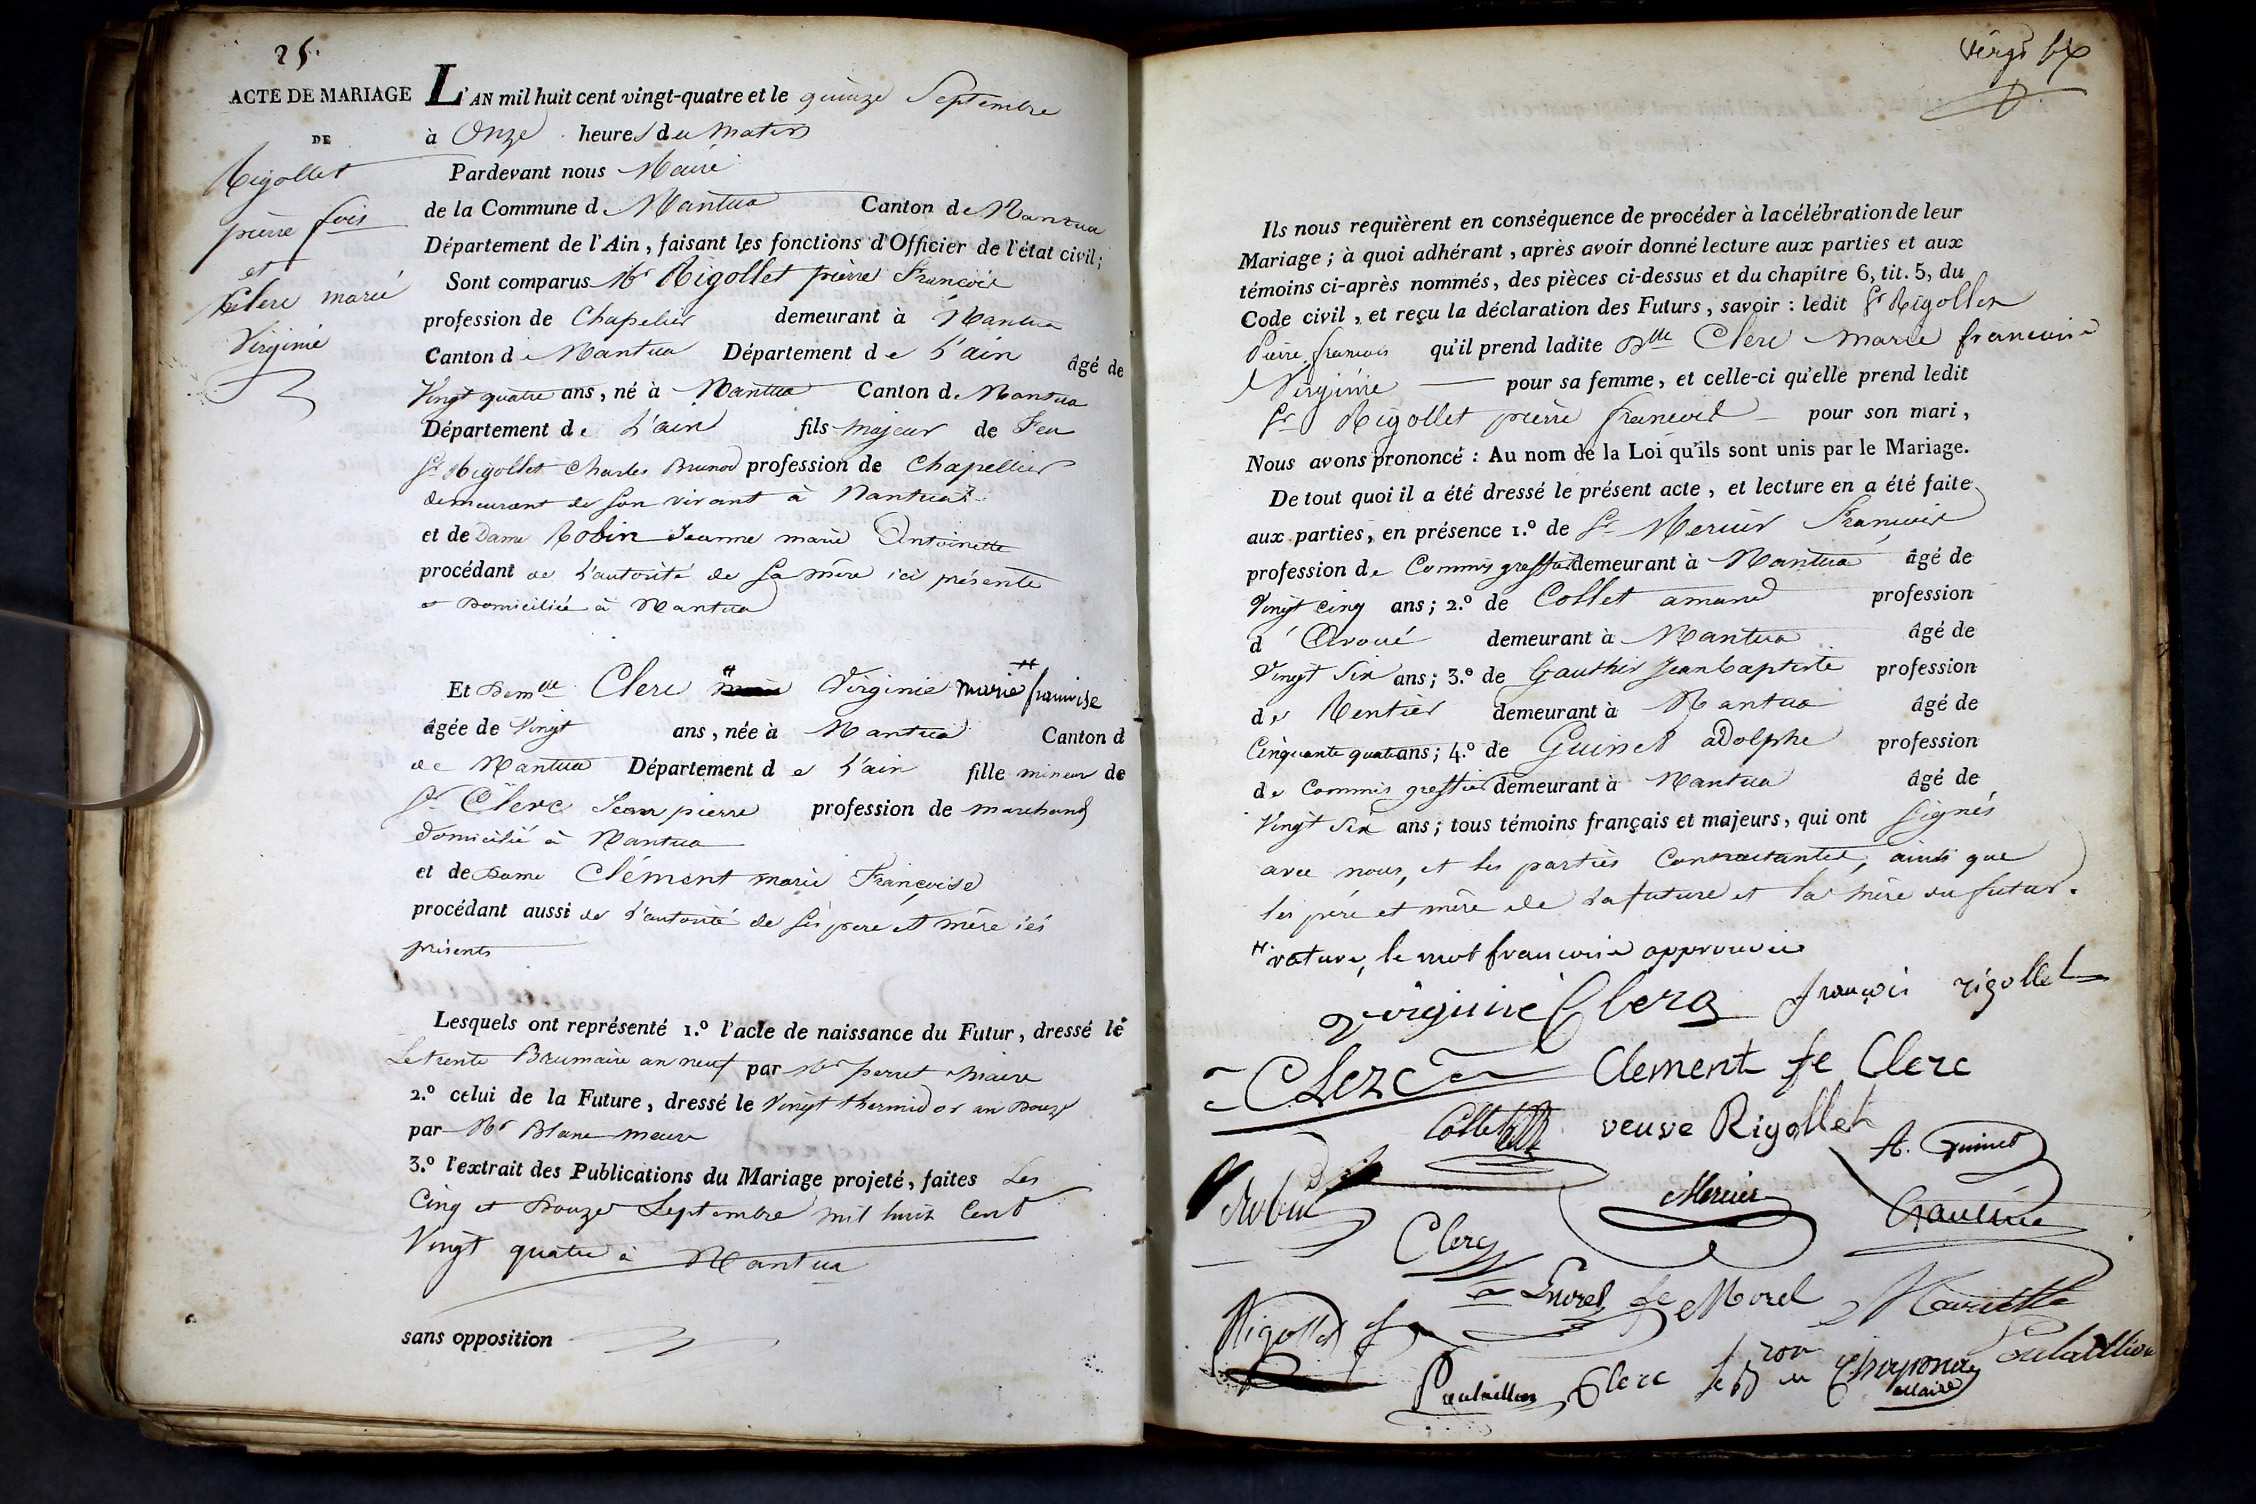 25.
ACTE DE MARIAGE
DE
Rigollet
pierre fois
et
Clerc marie
Virginie
L'AN mil huit cent vingt-quatre et le quinze Septembre
à Onze heures du matin
Pardevant nous Maire
de la Commune de Nantua Canton de Nantua
Département de l'Ain, faisant les fonctions d'Officier de l'état civil;
Sont comparus Mr Rigollet pierre François
profession de Chapelier demeurant à Nantua
Canton de Nantua Département de L'ain âgé de
Vingt quatre ans, né à Nantua Canton de Nantua
Département de L'ain fils majeur de Feu
Sr Rigollet Charles Brunod profession de Chapellier
demeurant de son vivant à Nantua
et de Dame Robin Jeanne marie Antoinette
procédant de L'autorité de sa mère ici présente
et Domiciliée à Nantua
Et Demlle Clerc Virginie marie françoise
âgée de Vingt ans, née à Nantua Canton d
de Nantua Département de L'ain fille mineur de
Sr Clerc Jean pierre profession de marchand
domicilié à Nantua
et de Dame Clément marie Françoise
procédant aussi de L'autorité de ses pere et mère ici
présents
Lesquels ont représenté 1.º l'acte de naissance du Futur, dressé le
Le trente Brumaire an neuf par Mr perret maire
2.º celui de la Future, dressé le Vingt thermidor an Douze
par Mr Blanc maire
3.º l'extrait des Publications du Mariage projeté, faites Les
Cinq et Douze Septembre mil huit Cent
Vingt quatre à Nantua
sans opposition
Ils nous requièrent en conséquence de procéder à la célébration de leur
Mariage; à quoi adhérant, après avoir donné lecture aux parties et aux
témoins ci-après nommés, des pièces ci-dessus et du chapitre 6, tit. 5, du
Code civil, et reçu la déclaration des Futurs, savoir : ledit Sr Rigollet
Pierre françois qu'il prend ladite Dlle Clerc marie françoise
Virginie pour sa femme, et celle-ci qu'elle prend ledit
Sr Rigollet pierre françois pour son mari,
Nous avons prononcé : Au nom de la Loi qu'ils sont unis par le Mariage.
De tout quoi il a été dressé le présent acte, et lecture en a été faite
aux parties, en présence 1.º de Sr Mercier François
profession de Commis greffier demeurant à Nantua âgé de
Vingt cinq ans; 2.º de Collet amand profession
d'Avoué demeurant à Nantua âgé de
Vingt Six ans; 3.º de Gauthier Jean baptiste profession
de Rentier demeurant à Nantua âgé de
Cinquante quatre ans; 4.º de Guinet adolphe profession
de Commis greffier demeurant à Nantua âgé de
Vingt Six ans; tous témoins français et majeurs, qui ont signés
avec nous, et les parties Contractantes, ainsi que
les père et mère de la future et la mère du futur.
rature, le mot françoise approuvée
Virginie Clerc françois rigollet
CLerc Clement fe Clerc
Collet veuve Rigollet A. Guinet
Robin Mercier
Clerc
fe Morel Mariette
Rigollet
Poulaillon Clerc Maire